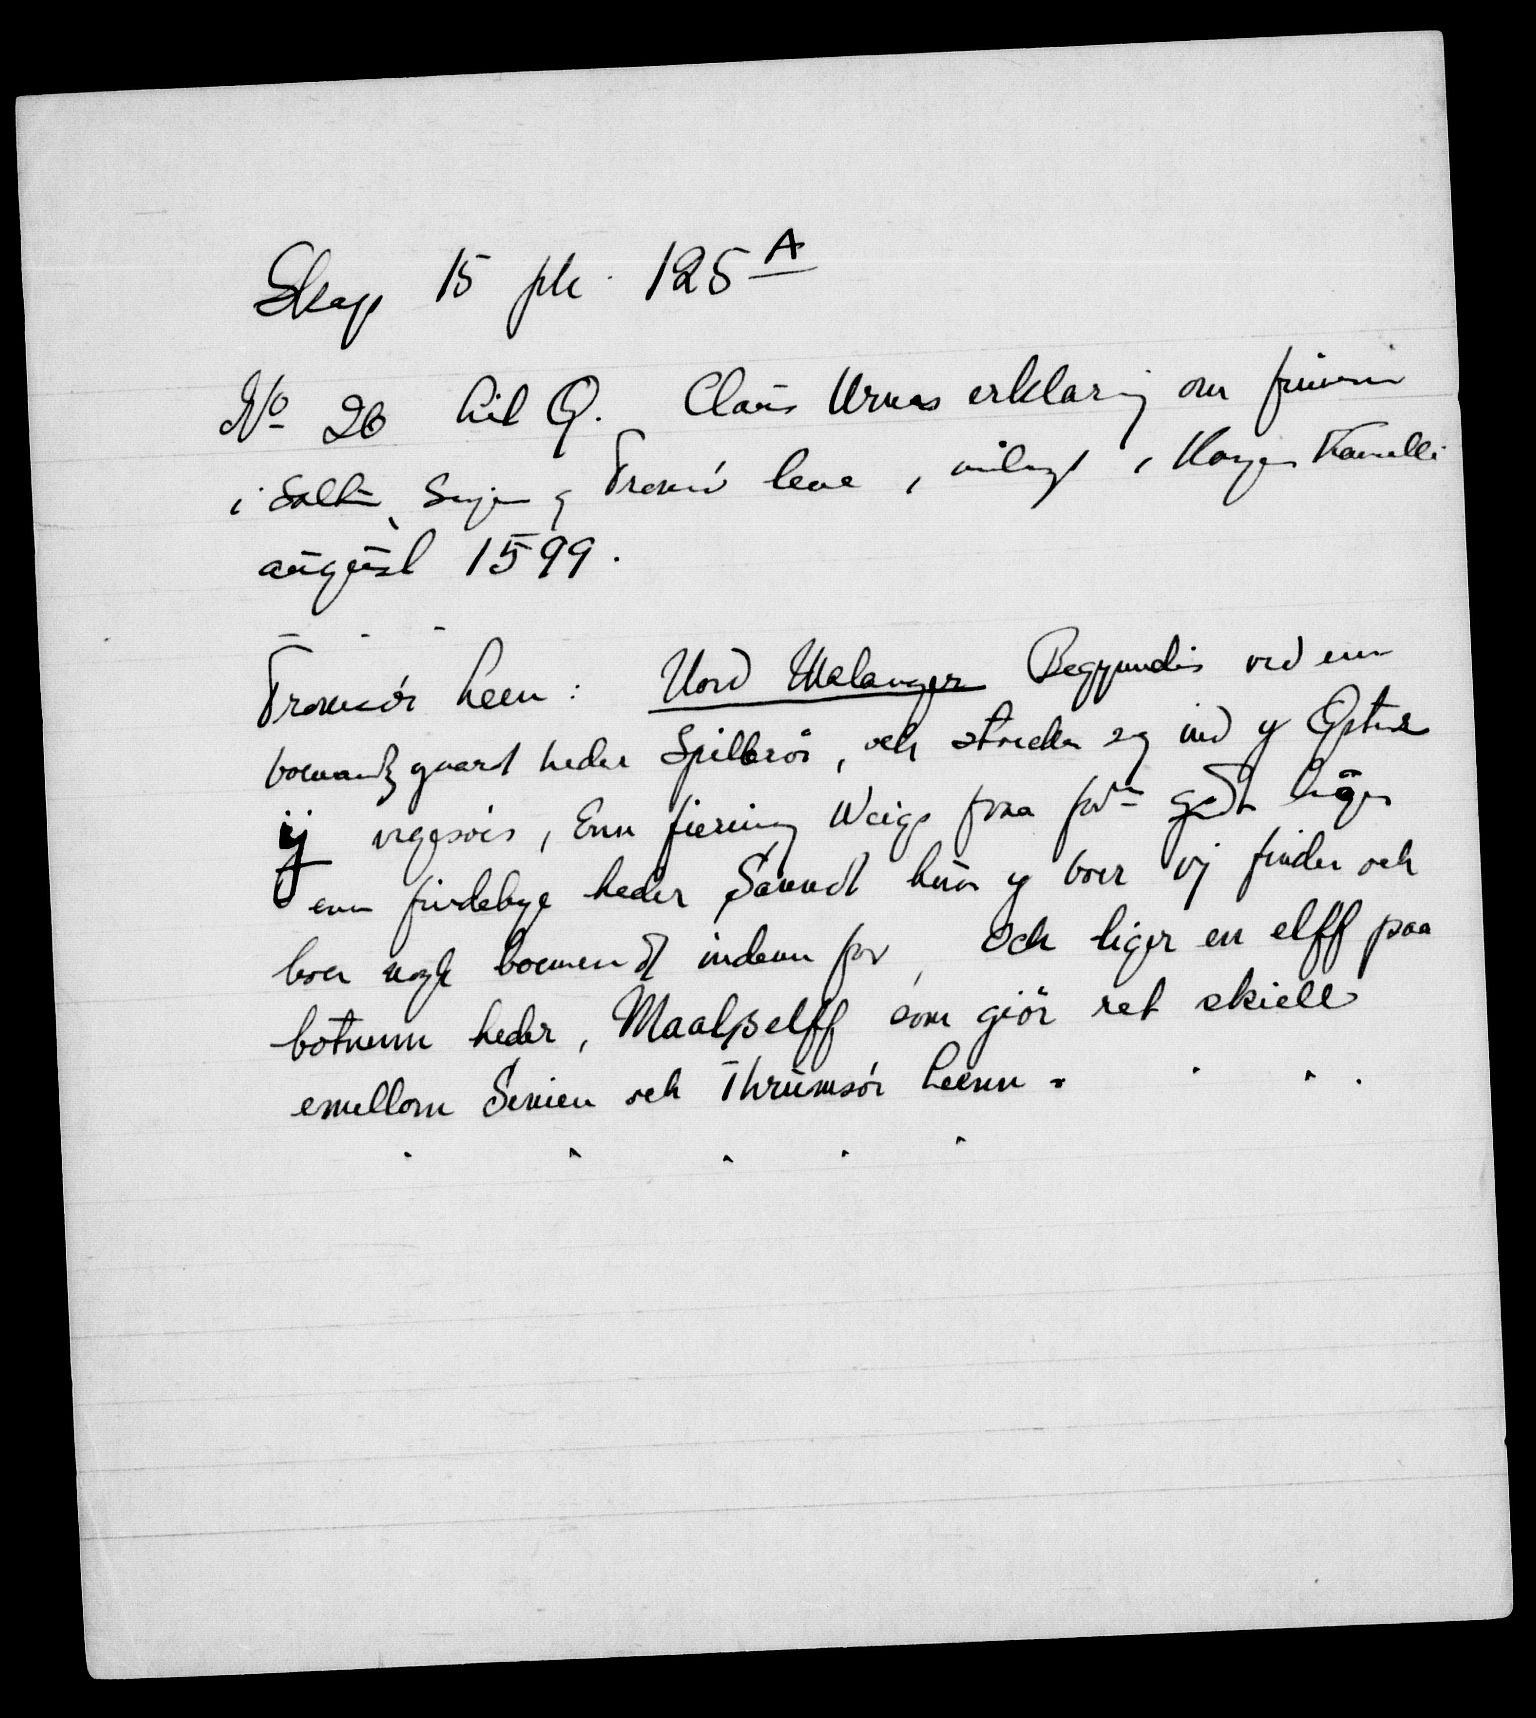 Skap 15 pk. 125 A
No 26 Lit Q. Claus Urnes erklaring om finnerne
i Salten, Senjen og Tromsø lene, i Vargen
august 1599.
Tromsör Leen: Nord Malanger Begyndis ved enn
boemandz gaard heder Spilderör, och strecker seg ind y Öster
ij vegesöis, Enn fierring Weigs fraa for: gdt ligger
enn findebye heder Sanndt huor y boer vj finder och
boer nogle boemendt indenn for, Och liger en elff paa
botnenn heder, Maalßelff som giör ret skiell
emellom Senien och Thrumsör Leenn.